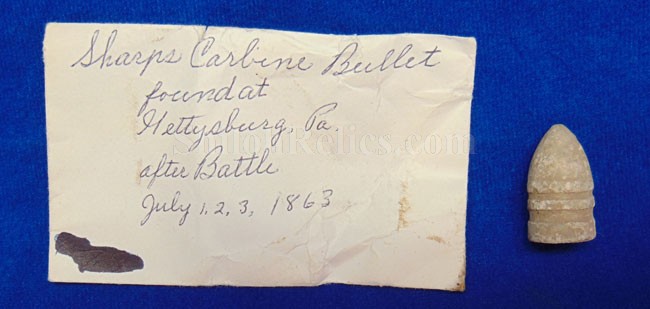 Sharps Carbine Bullet
found at
Gettysburg, Pa.
after Battle
July 1, 2, 3, 1863
ShilohRelics.com